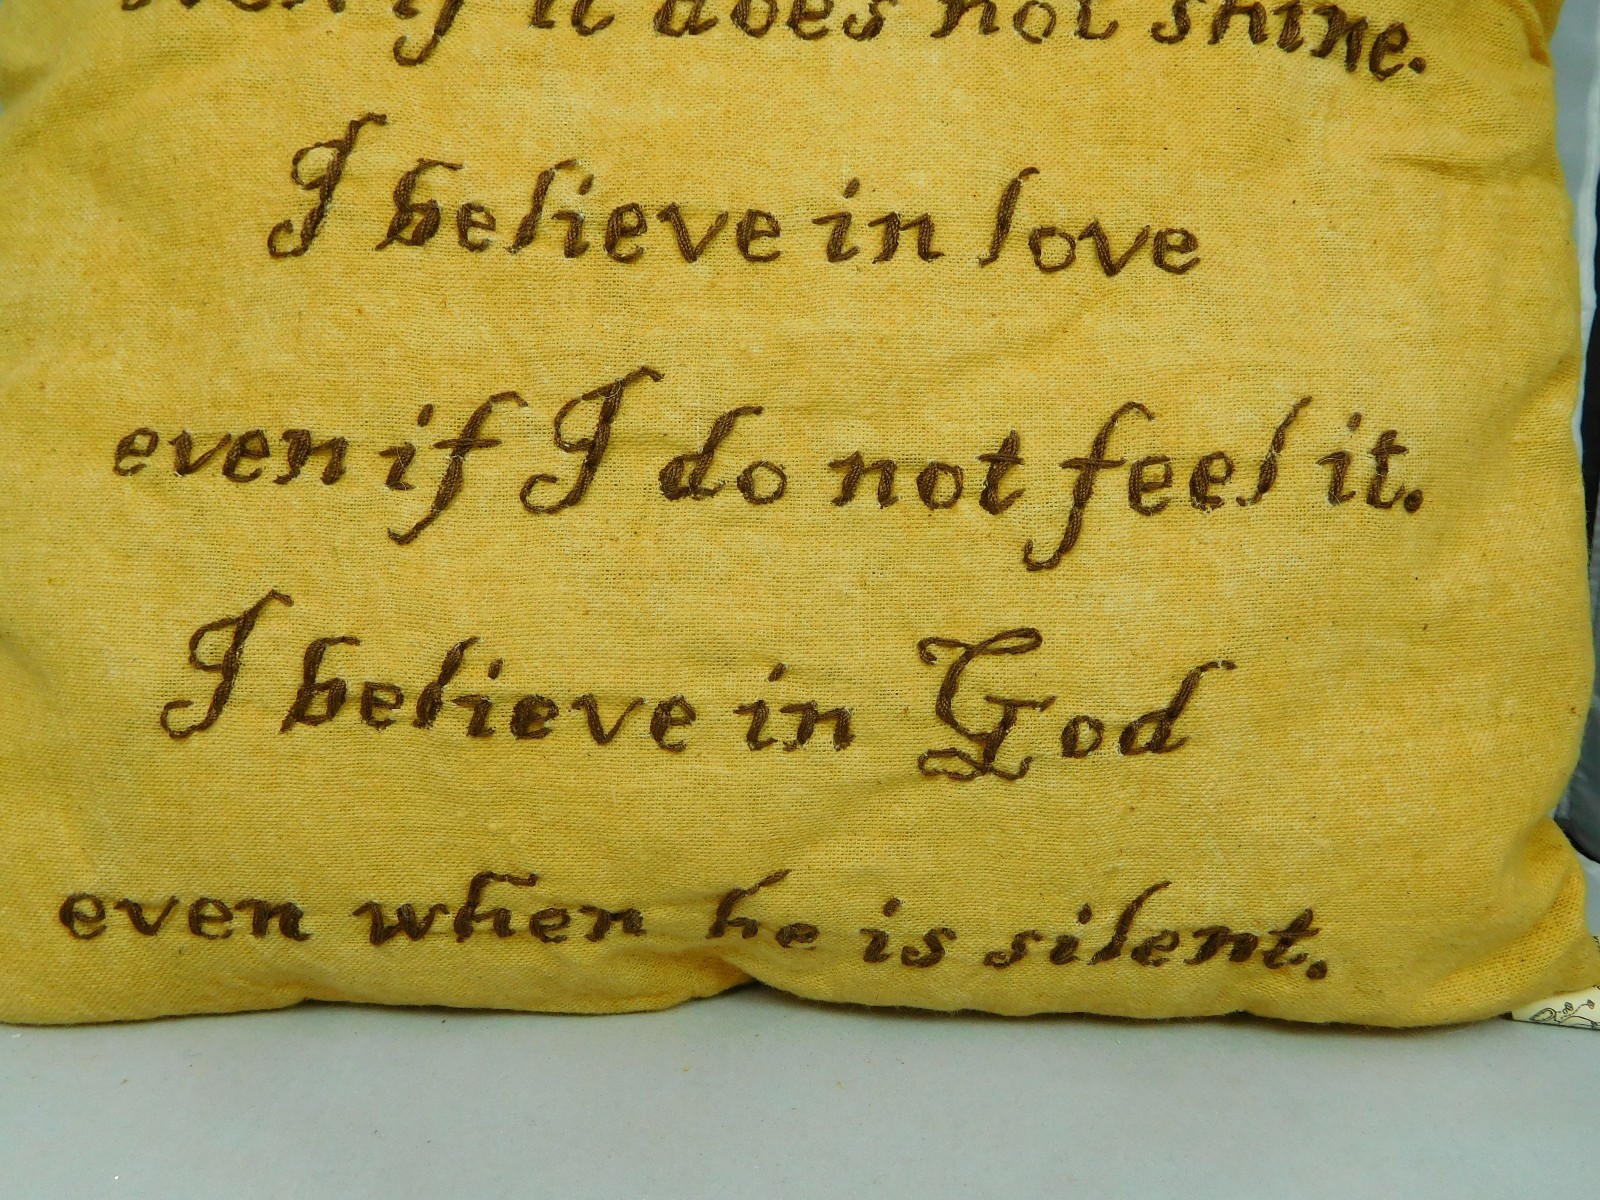 even if it does not shine.
I believe in love
even if I do not feel it.
I believe in God
even when he is silent.